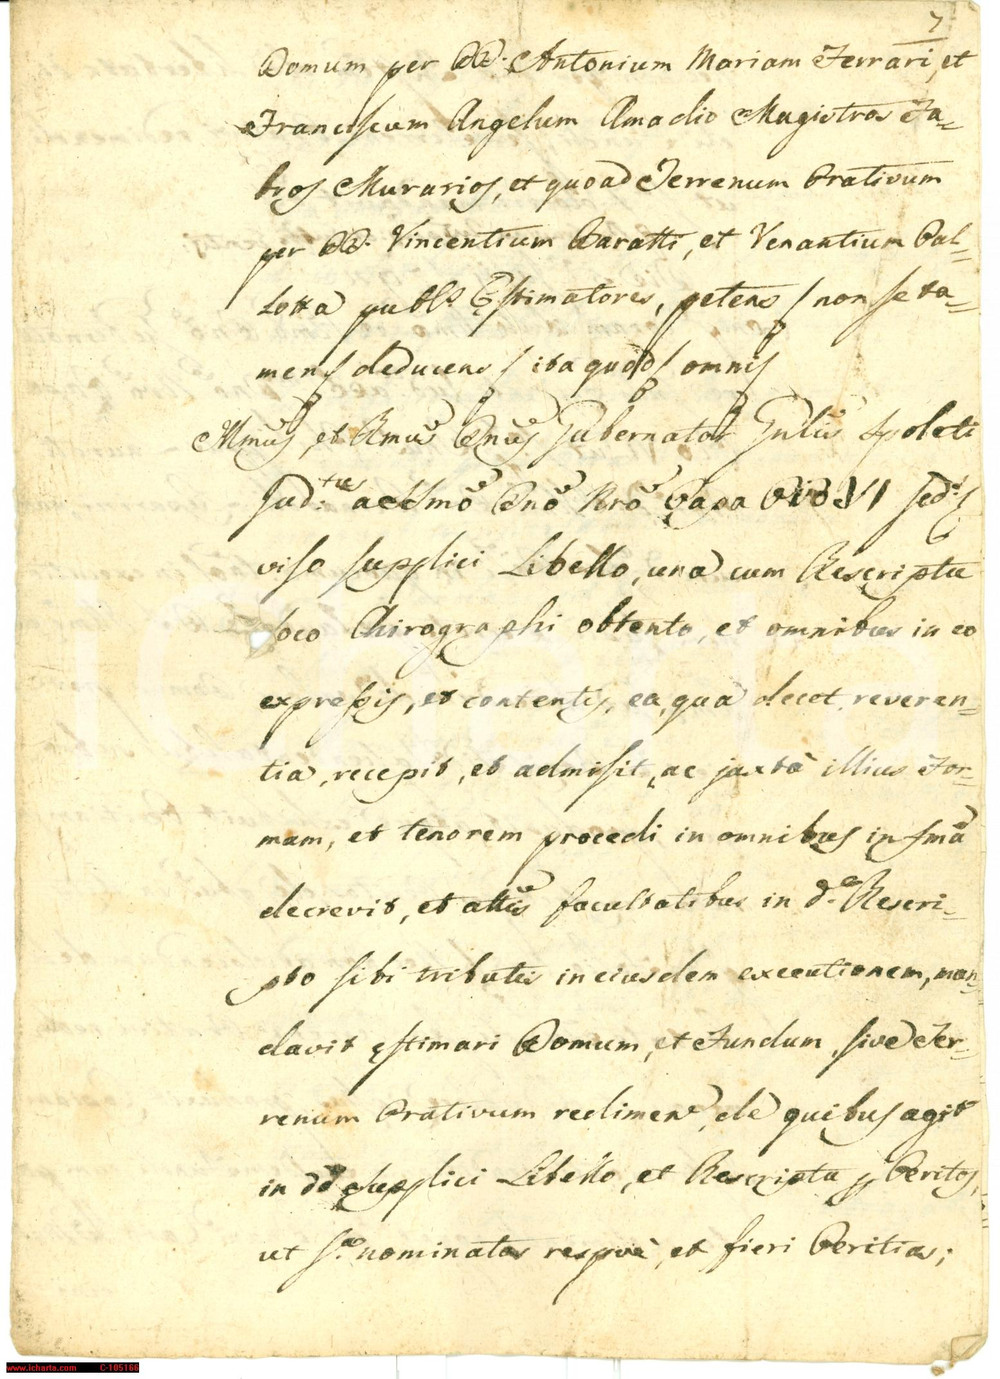 7
Domum per DD. Antonium Mariam Ferrari, et
Franciscum Angelum Amadio Magistros Fa-
bros Murarios, et quoad Terrenum Prativum
per DD. Vincentium Baratti, et Venantium Pal-
lotta publ.s Estimatores, petens / non se ta-
men / deducens / ita quod / omnis
Illmus, et Rmus Dnus Gubernator Gnlis Spoleti
Jud: a SSmo Dno Nro Papa Pio VI
viso supplici Libello, una cum Rescripto
loco Chirographi obtento, et omnibus in eo
expressis, et contentis, ea, qua decet reveren-
tia, recepit, et admisit, ac juxta illius For-
mam, et tenorem procedi in omnibus in fma
decrevit, et attis facultatibus in d.o Rescri-
pto sibi tributis in eiusdem executionem, man-
davit estimari Domum, et Fundum, sive Ter-
renum Prativum redimen, de quibus agit
in dd supplici Libello, et Rescripto p Peritos,
ut s.a nominatos respve, et fieri Peritias;
www.icharta.com C-105166